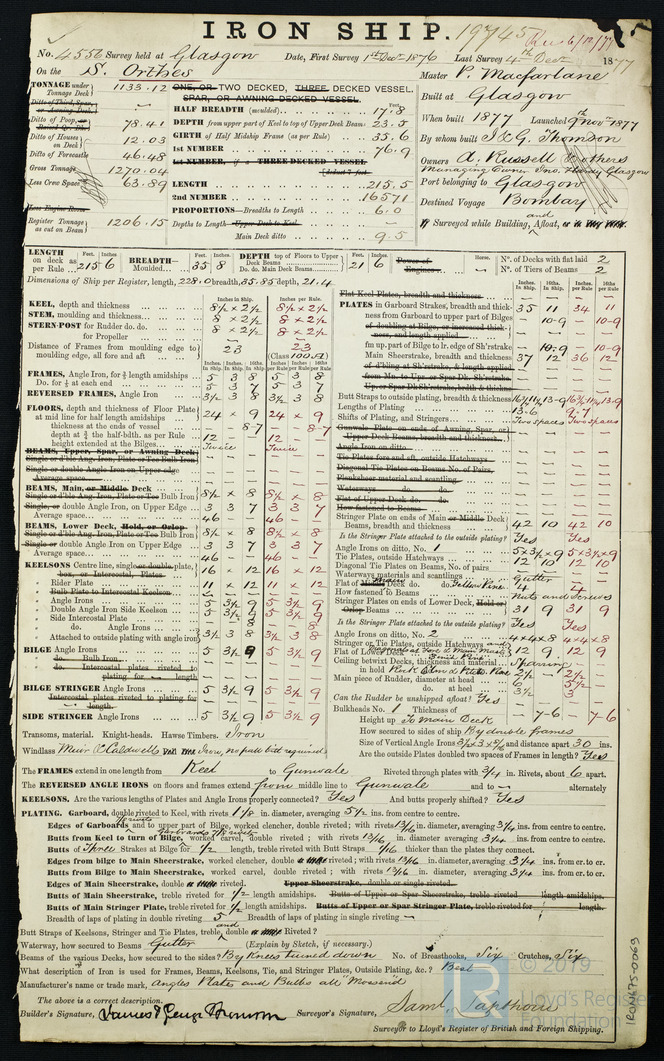 IRON SHIP.
19745 Rec 6/12/77
No. 4556 Survey held at Glasgow Date, First Survey 1st Decr 1876 Last Survey 4th Decr 1877
On the S. Orthes Master P. Macfarlane
TONNAGE under Tonnage Deck 1133.12
Ditto of Poop, 78.41
Ditto of Houses on Deck 12.03
Ditto of Forecastle 46.48
Gross Tonnage 1270.04
Less Crew Space 63.89
Less Engine Room
Register Tonnage as cut on Beam 1206.15
ONE, OR TWO DECKED, THREE DECKED VESSEL.
SPAR, OR AWNING-DECKED VESSEL.
HALF BREADTH (moulded) 17.8
DEPTH from upper part of Keel to top of Upper Deck Beams 23.5
GIRTH of Half Midship Frame (as per Rule) 35.6
1st NUMBER 76.9
1st NUMBER, if a THREE-DECKED VESSEL
deduct 7 feet
LENGTH 215.5
2nd NUMBER 16571
PROPORTIONS—Breadths to Length 6.0
Depths to Length—Upper Deck to Keel
Main Deck ditto 9.5
Built at Glasgow
When built 1877 Launched 9th Novr 1877
By whom built J & G. Thomson
Owners A. Russell & others
Managing Owner Jno. Hardy Glasgow
Port belonging to Glasgow
Destined Voyage Bombay
If Surveyed while Building, and Afloat, or in Dry Dock.
LENGTH on deck as per Rule 215 6 BREADTH— Moulded 35 8 DEPTH top of Floors to Upper Deck Beams Do. do. Main Deck Beams 21 6 Power of Engines Horse. No. of Decks with flat laid 2
No. of Tiers of Beams 2
Dimensions of Ship per Register, length, 228.0 breadth, 35.85 depth, 21.4
Inches in Ship. Inches per Rule.
KEEL, depth and thickness 8½ x 2½ 8½ x 2½
STEM, moulding and thickness 8 x 2½ 8 x 2½
STERN-POST for Rudder do. do. 8 x 2½ 8 x 2½
for Propeller
Distance of Frames from moulding edge to moulding edge, all fore and aft 23 23
(Class 100.A)
FRAMES, Angle Iron, for ¾ length amidships 5 3 8 5 3 8
Do. for ⅛ at each end 5 3 7 5 3 7
REVERSED FRAMES, Angle Iron 3½ 3 8 3½ 3 8
FLOORS, depth and thickness of Floor Plate at mid line for half length amidships 24 x 9 24 x 9
thickness at the ends of vessel 8-7 8-7
depth at ¾ the half-bdth. as per Rule 12 12
height extended at the Bilges Twice Twice
BEAMS, Upper, Spar, or Awning Deck
Single or d'ble Ang. Iron, Plate or Tee Bulb Iron
Single or double Angle Iron on Upper edge
Average space
BEAMS, Main, or Middle Deck
Single or d'ble Ang. Iron, Plate or Tee Bulb Iron 8½ x 8 8½ x 8
Single, or double, Angle Iron, on Upper Edge 3 3 7 3 3 7
Average space 46 46
BEAMS, Lower Deck, Hold, or Orlop
Single or d'ble Ang. Iron, Plate or Tee Bulb Iron 8½ x 8 8½ x 8
Single or double Angle Iron on Upper Edge 3 3 7 3 3 7
Average space 46 46
KEELSONS Centre line, single or double plate, box, or Intercostal, Plates 16 x 12 16 x 12
Rider Plate 11 x 12 11 x 12
Bulb Plate to Intercostal Keelson
Angle Irons 5 3½ 9 5 3½ 9
Double Angle Iron Side Keelson 5 3½ 9 5 3½ 9
Side Intercostal Plate
do. Angle Irons
Attached to outside plating with angle iron 3½ 3 8 3½ 3 8
BILGE Angle Irons 5 3½ 9 5 3½ 9
do. Bulb Iron
do. Intercostal plates riveted to plating for length
BILGE STRINGER Angle Irons 5 3½ 9 5 3½ 9
Intercostal plates riveted to plating for length
SIDE STRINGER Angle Irons 5 3½ 9 5 3½ 9
Flat Keel Plates, breadth and thickness
PLATES in Garboard Strakes, breadth and thickness 35 11 34 11
ness from Garboard to upper part of Bilges 10-9 10-9
of doubling at Bilge, or increased thickness, and length applied
fm up. part of Bilge to lr. edge of Sh'rstrake 10-9 10-9
Main Sheerstrake, breadth and thickness 37 12 36 12
of d'bling at Sh'strake, & length applied
fm Mn. to Upr. or Spar Dk Sh'rstrake
Up. or Spar Dk Sh'strake, brdth & thickns
Butt Straps to outside plating, breadth & thickness
Lengths of Plating 13-6 9-7
Shifts of Plating, and Stringers Two spaces Two spaces
Gunwale Plate on ends of Awning, Spar, or Upper Deck Beams, breadth and thickness
Angle Iron on ditto
Tie Plates fore and aft, outside Hatchways
Diagonal Tie Plates on Beams No. of Pairs,
Planksheer material and scantling
Waterways do. do.
Flat of Upper Deck do. do.
How fastened to Beams
Stringer Plate on ends of Main or Middle Deck Beams, breadth and thickness 42 10 42 10
Is the Stringer Plate attached to the outside plating? Yes Yes
Angle Irons on ditto, No. 2 5x3½x9 5x3½x9
Tie Plates, outside Hatchways 12 10 12 10
Diagonal Tie Plates on Beams, No. of pairs
Waterways materials and scantlings Gutter
Flat of Main Deck do. do. Yellow Pine 4 4
How fastened to Beams Nuts and Screws
Stringer Plates on ends of Lower Deck, Hold or Orlop Beams 31 9 31 9
Is the Stringer Plate attached to the outside plating? Yes Yes
Angle Irons on ditto, No. 2 4x4x8 4x4x8
Stringer or Tie Plates, outside Hatchways 12 9 12 9
Flat of Lower Deck
Ceiling betwixt Decks, thickness and material Sparring
in hold Rock Elm & Pitch Pine 2½ 2½
Main piece of Rudder, diameter at head 5½
do. at heel 3½ 3
Can the Rudder be unshipped afloat? Yes
Bulkheads No. 1 Thickness of 7-6 7-6
Height up To Main Deck
How secured to sides of ship By double frames
Size of Vertical Angle Irons and distance apart 30 ins.
Are the outside Plates doubled two spaces of Frames in length? Yes
Transoms, material. Knight-heads. Hawse Timbers. Iron
Windlass Muir & Caldwells
The FRAMES extend in one length from Keel to Gunwale Riveted through plates with ¾ in. Rivets, about 6 apart.
The REVERSED ANGLE IRONS on floors and frames extend from middle line to Gunwale and to alternately
KEELSONS. Are the various lengths of Plates and Angle Irons properly connected? Yes And butts properly shifted? Yes
PLATING. Garboard, double riveted to Keel, with rivets 1⅛ in. diameter, averaging 5½ ins. from centre to centre.
Edges of Garboards and to upper part of Bilge, worked clencher, double riveted; with rivets 13/16 in. diameter, averaging 3¼ ins. from centre to centre.
Butts from Keel to turn of Bilge, worked carvel, double riveted; with rivets 13/16 in. diameter, averaging 3¼ ins. from centre to centre.
Butts of Three Strakes at Bilge for ½ length, treble riveted with Butt Straps 1/16 thicker than the plates they connect.
Edges from bilge to Main Sheerstrake, worked clencher, double riveted; with rivets 13/16 in. diameter, averaging 3¼ ins. from cr. to cr.
Butts from Bilge to Main Sheerstrake, worked carvel, double riveted; with rivets 13/16 in. diameter, averaging 3¼ ins. from cr. to cr.
Edges of Main Sheerstrake, double riveted. Upper Sheerstrake, double or single riveted.
Butts of Main Sheerstrake, treble riveted for ½ length amidships. Butts of Upper or Spar Sheerstrake, treble riveted length amidships.
Butts of Main Stringer Plate, treble riveted for ½ length amidships. Butts of Upper or Spar Stringer Plate, treble riveted for length.
Breadth of laps of plating in double riveting 5 Breadth of laps of plating in single riveting
Butt Straps of Keelsons, Stringer and Tie Plates, treble, and double Riveted?
Waterway, how secured to Beams Gutter (Explain by Sketch, if necessary.)
Beams of the various Decks, how secured to the sides? By Knees turned down No. of Breasthooks, Six Crutches, Six
What description of Iron is used for Frames, Beams, Keelsons, Tie, and Stringer Plates, Outside Plating, &c.? Best
Manufacturer's name or trade mark, Angles Plates and Bulbs all "Mossend"
The above is a correct description.
Builder's Signature, James & George Thomson Surveyor's Signature, Saml. Tapthorn
Surveyor to Lloyd's Register of British and Foreign Shipping.
© 2019
LR Lloyd's Register Foundation
IRON475-0069